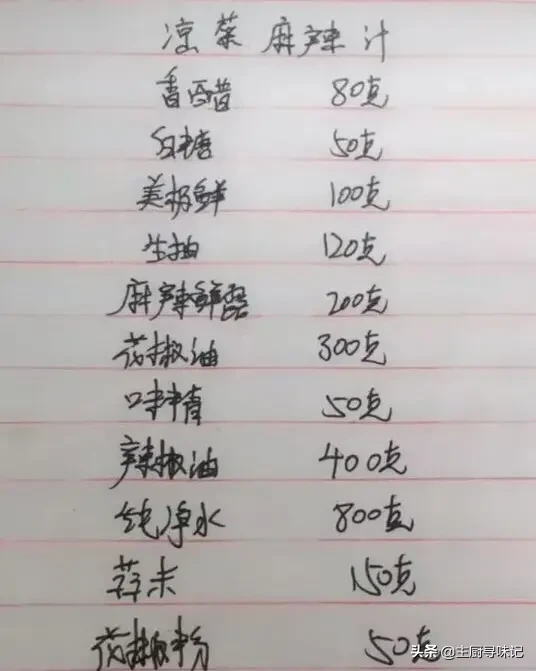 凉菜麻辣汁
香醋 80克
白糖 50克
美极鲜 100克
生抽 120克
麻辣鲜露 200克
花椒油 300克
味精 50克
辣椒油 400克
纯净水 800克
蒜末 150克
花椒粉 50克
头条 @主厨寻味记